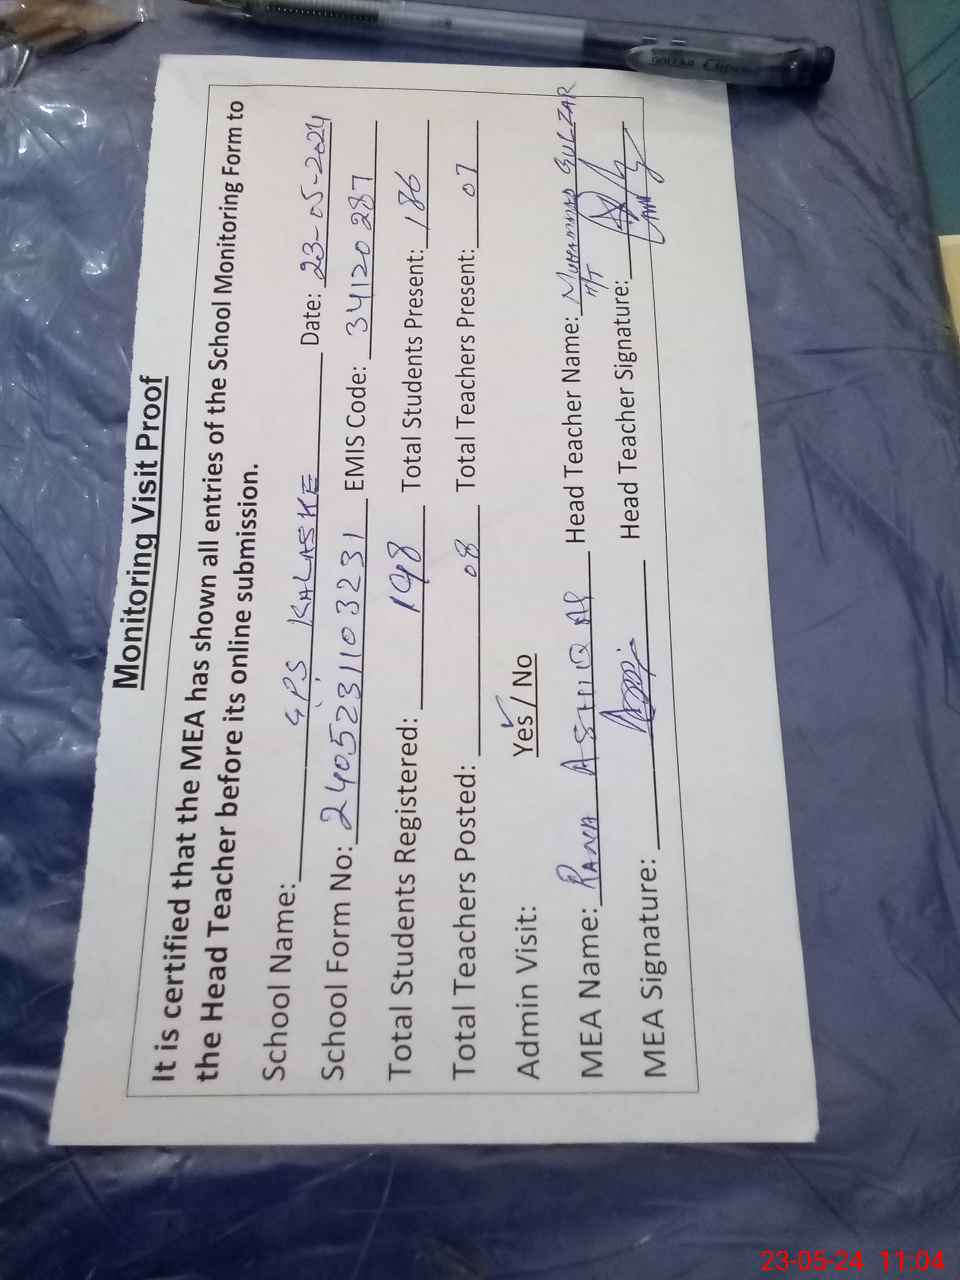 Monitoring Visit Proof
It is certified that the MEA has shown all entries of the School Monitoring Form to
the Head Teacher before its online submission.
School Name: GPS KALASKE Date: 23-05-2024
School Form No: 2405231103231 EMIS Code: 34120287
Total Students Registered: 198 Total Students Present: 186
Total Teachers Posted: 08 Total Teachers Present: 07
Admin Visit: Yes / No
MEA Name: RANA ASHIQ Ali Head Teacher Name: MUHAMMAD GULZAR
H/T
MEA Signature: Head Teacher Signature:
DOLLAR Clipper
23-05-24 11:04